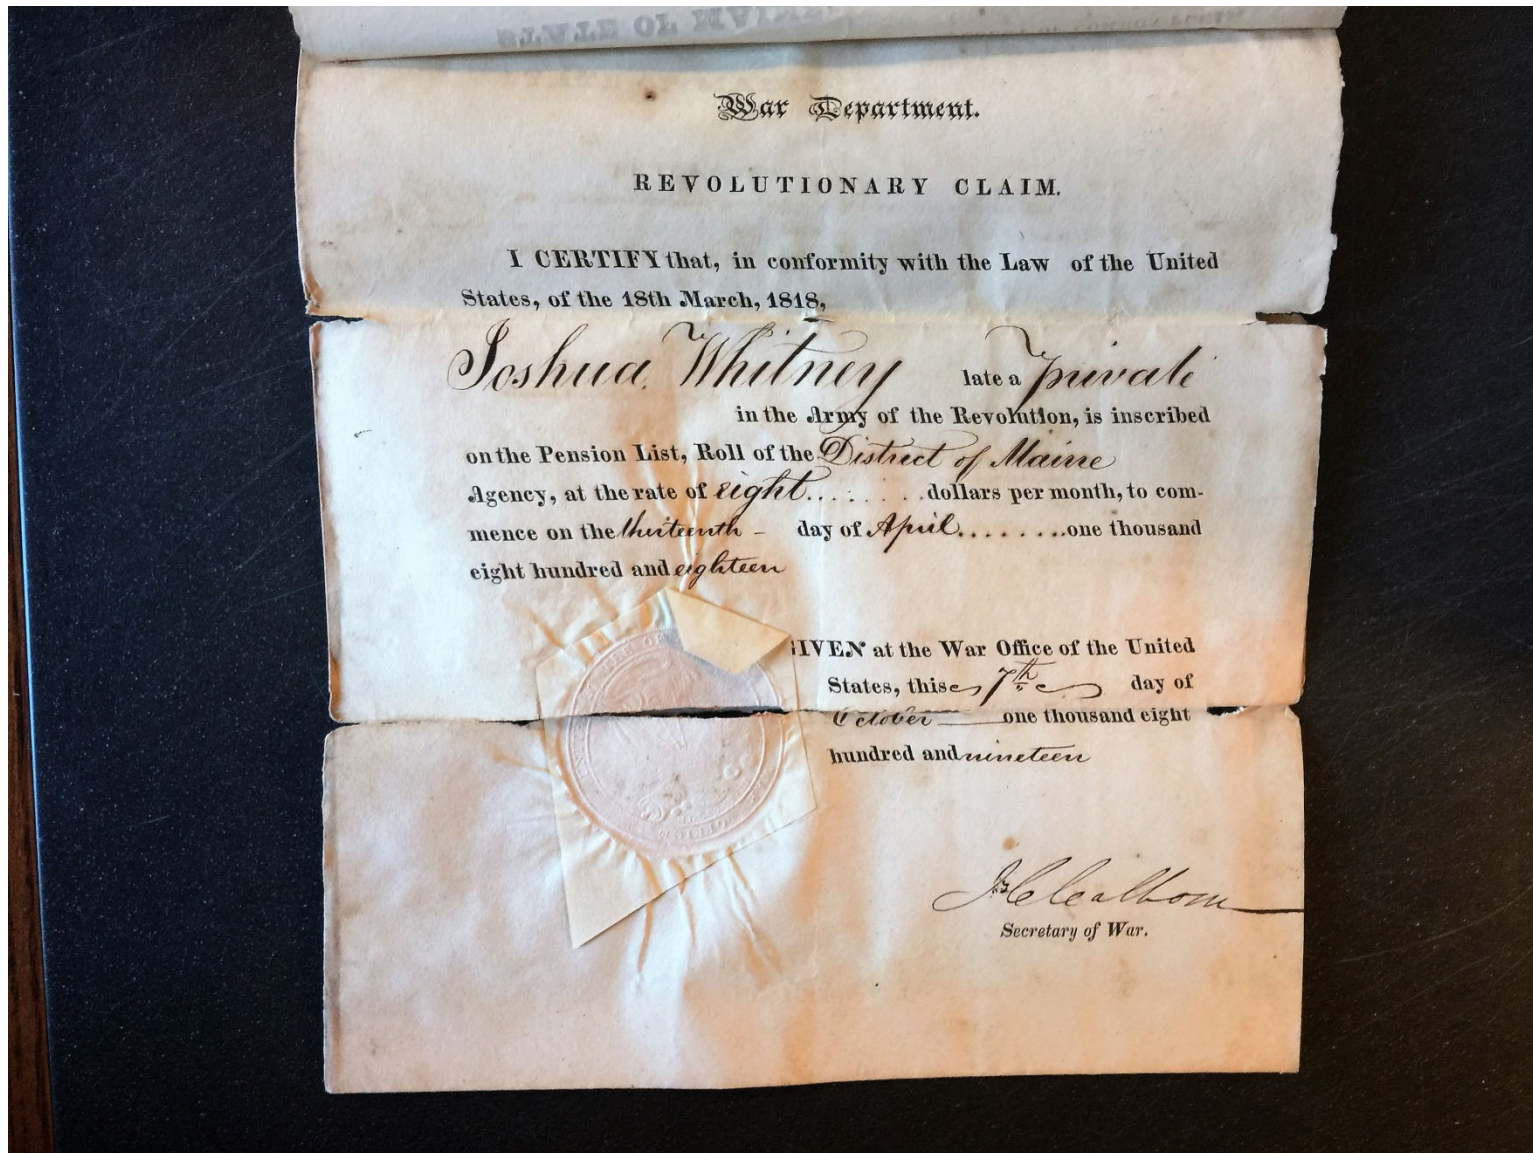 STATE OF MAINE
War Department.
REVOLUTIONARY CLAIM.
I CERTIFY that, in conformity with the Law of the United
States, of the 18th March, 1818,
Joshua Whitney late a private
in the Army of the Revolution, is inscribed
on the Pension List, Roll of the District of Maine
Agency, at the rate of eight........dollars per month, to com-
mence on the thirteenth - day of April........one thousand
eight hundred and eighteen
GIVEN at the War Office of the United
States, this 7th day of
October one thousand eight
hundred and nineteen
J. C. Calhoun
Secretary of War.
WAR OFFICE